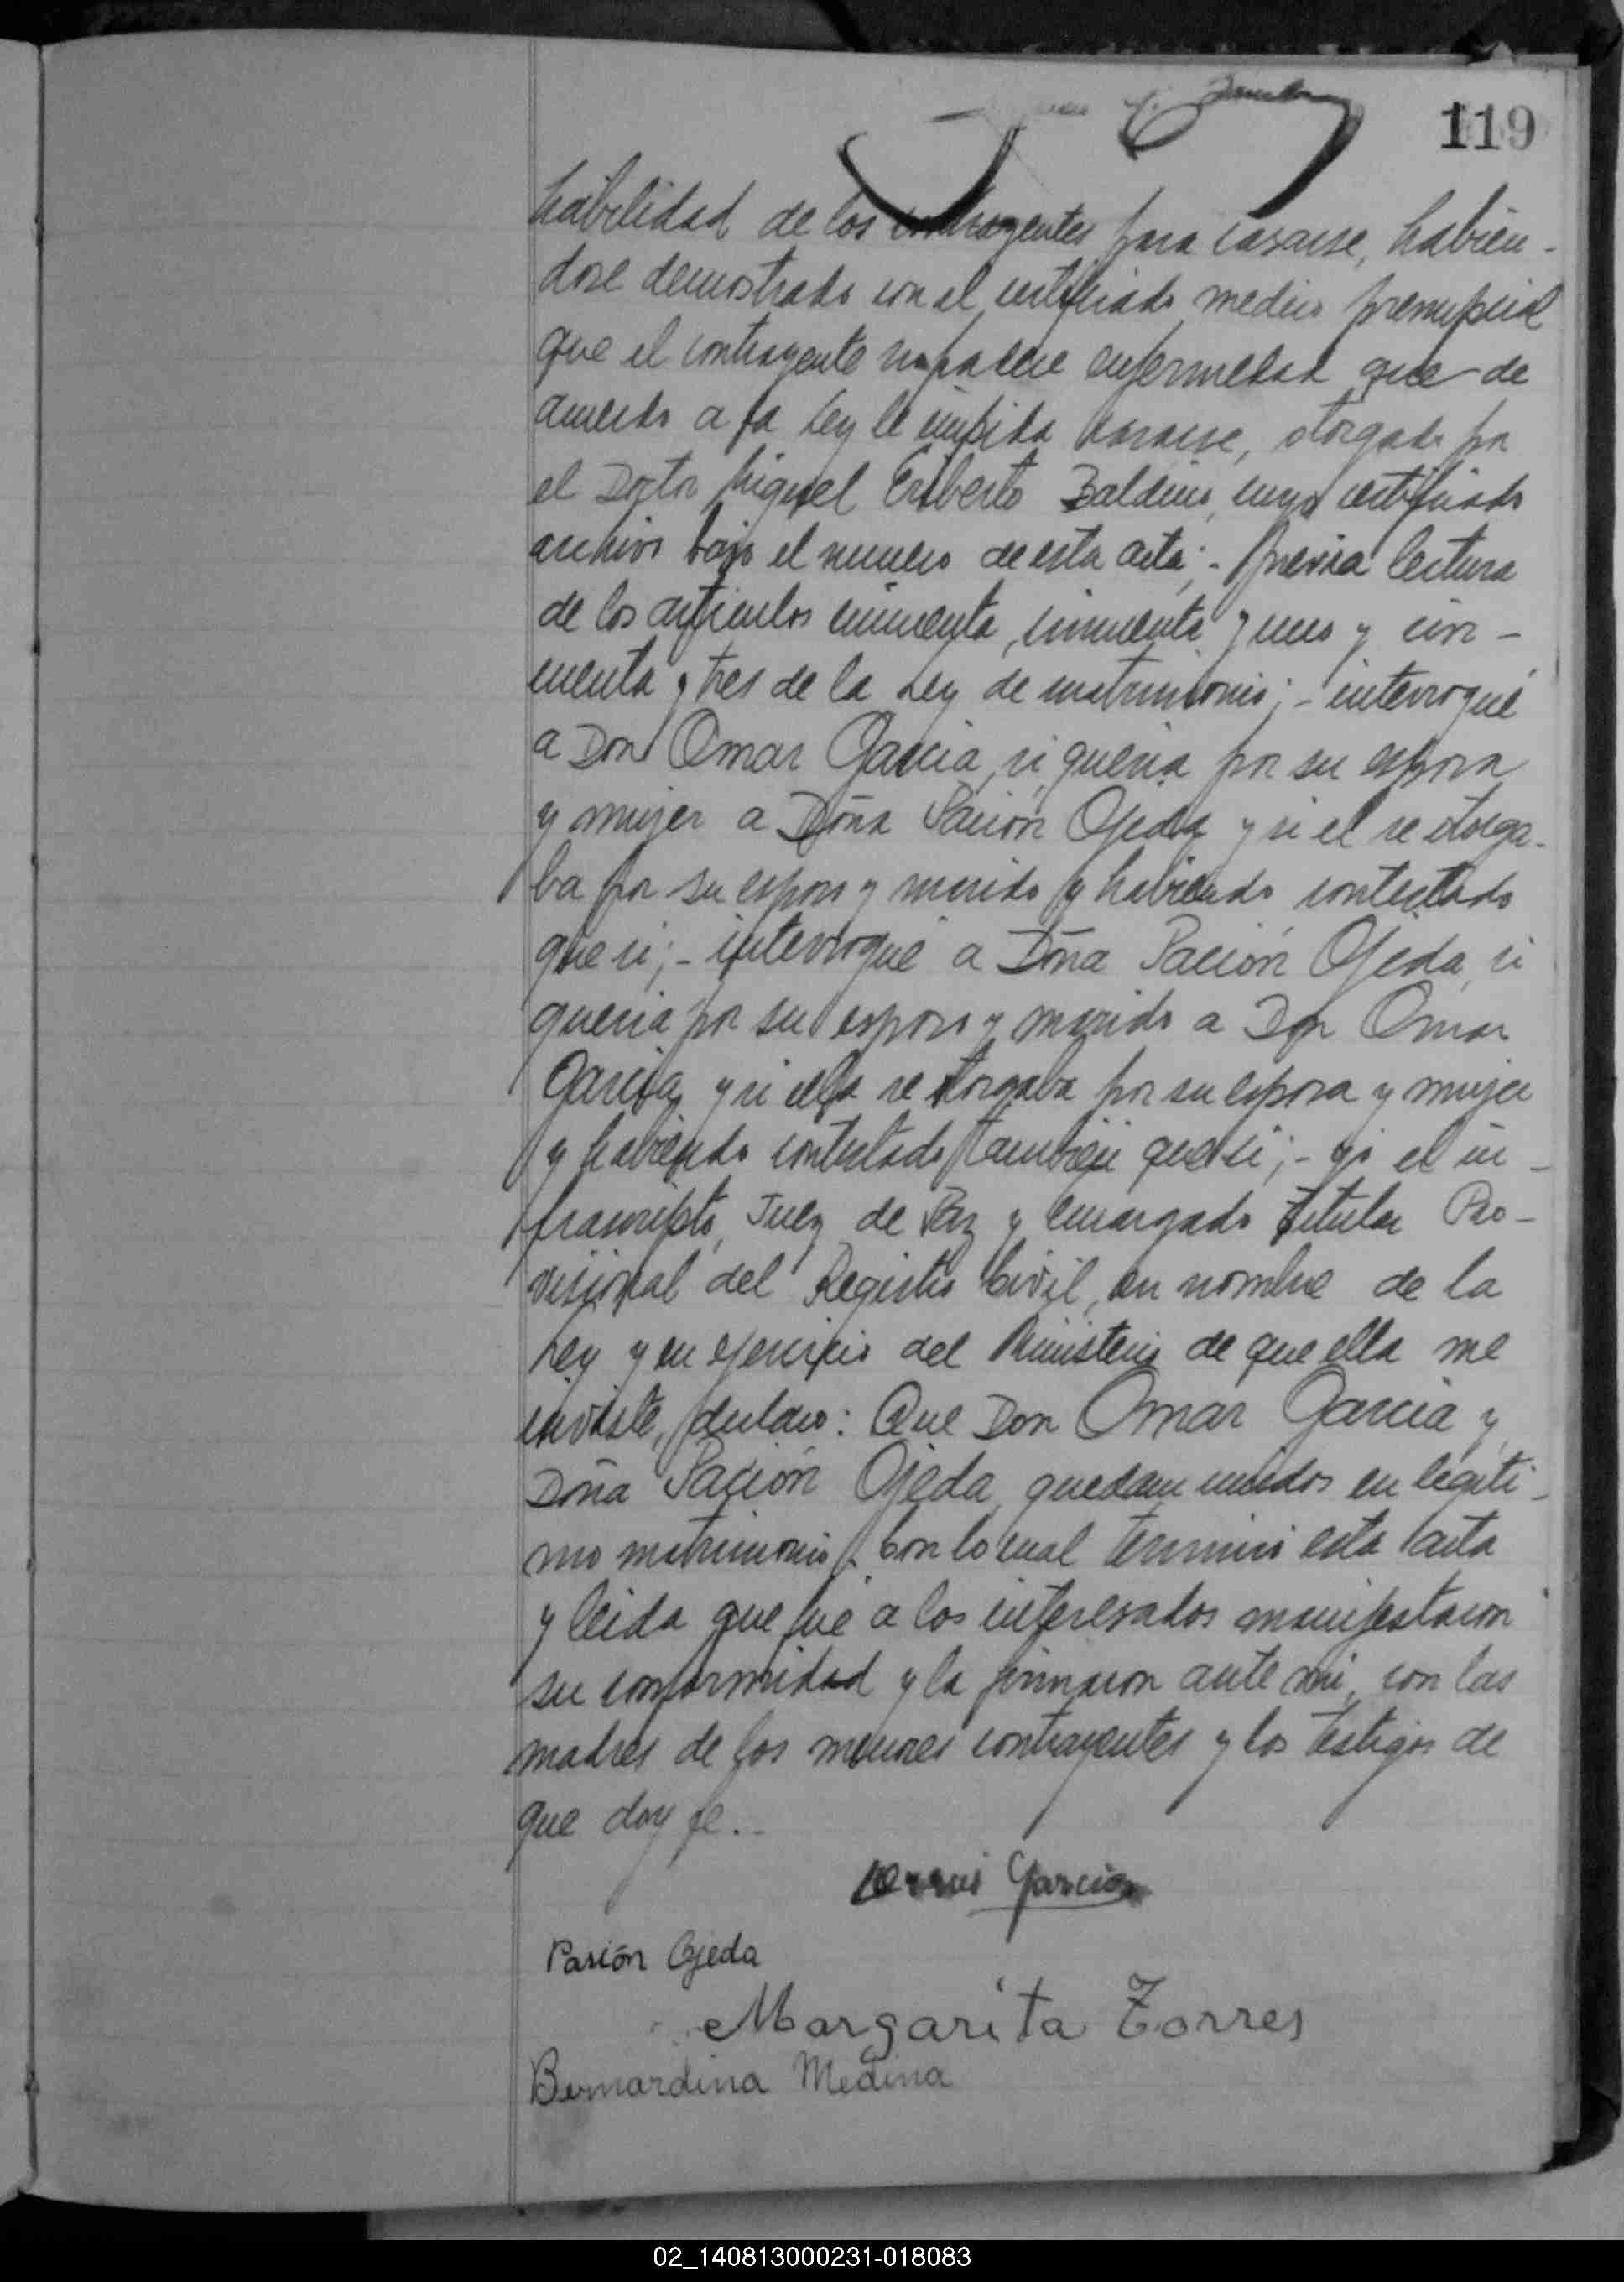 119
habilidad de los contrayentes para casarse, habien-
dose demostrado con el certificado medico prenupcial
que el contrayente no padece enfermedad que de
acuerdo a la Ley le impida casarse, otorgado por
el Doctor Miguel Eriberto Baldino, cuyo certificado
archivo bajo el numero de esta acta;- previa lectura
de los articulos cincuenta, cincuenta y uno y cin-
cuenta y tres de la Ley de matrimonio;- interrogué
a Don Omar Garcia, si queria por su esposa
y mujer a Doña Pación Ojeda y si el se otorga-
ba por su esposo y marido y habiendo contestado
que si;- interrogué a Doña Pación Ojeda, si
queria por su esposo y marido a Don Omar
Garcia, y si ella se otorgaba por su esposa y mujer
y habiendo contestado tambien que si;- yo el in-
frascripto, Juez de Paz y encargado titular Pro-
visional del Registro Civil, en nombre de la
Ley y en ejercicio del Ministerio de que ella me
inviste, declaro: Que Don Omar Garcia y
Doña Pación Ojeda, quedan unidos en legiti-
mo matrimonio. Con lo cual terminó esta acta
y leida que fué a los interesados manifestaron
su conformidad y la firmaron ante mi, con las
madres de los menores contrayentes y los testigos de
que doy fe.-
Garcia
Pasión Ojeda
Margarita Torres
Bernardina Medina
02_140813000231-018083